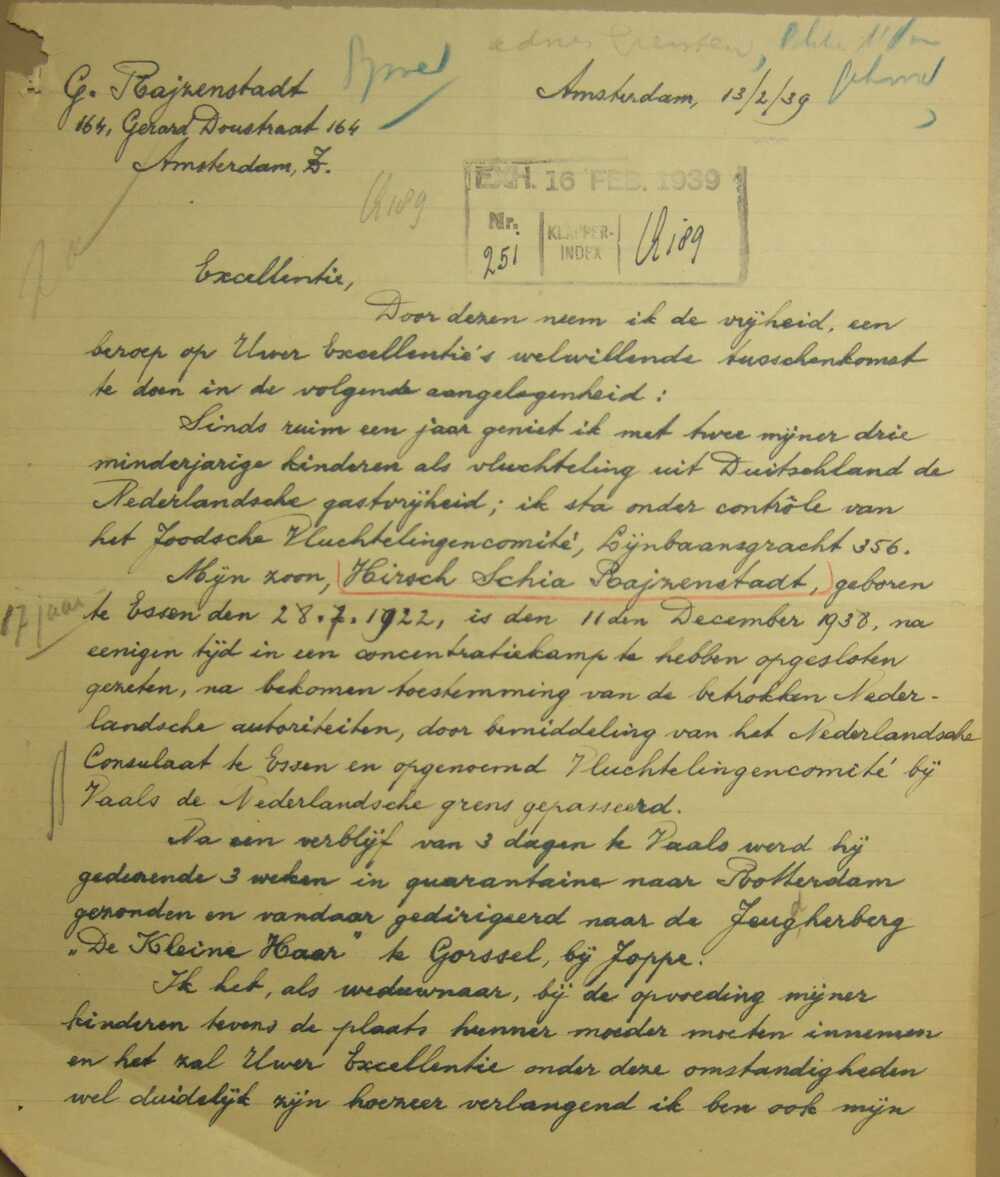 G. Rajzenstadt
164, Gerard Doustraat 164
Amsterdam, Z.
Amsterdam, 13/2/39
EXH. 16 FEB. 1939
Nr. 251
KLAPPER-INDEX
R 189
R 189
Excellentie,
Door dezen neem ik de vrijheid, een
beroep op Uwer Excellentie's welwillende tusschenkomst
te doen in de volgende aangelegenheid:
Sinds ruim een jaar geniet ik met twee mijner drie
minderjarige kinderen als vluchteling uit Duitschland de
Nederlandsche gastvrijheid; ik sta onder contrôle van
het Joodsche Vluchtelingencomité, Lijnbaansgracht 356.
Mijn zoon, Hirsch Schia Rajzenstadt, geboren
17 jaar
te Essen den 28.7.1922, is den 11den December 1938, na
eenigen tijd in een concentratiekamp te hebben opgesloten
gezeten, na bekomen toestemming van de betrokken Neder-
landsche autoriteiten, door bemiddeling van het Nederlandsche
Consulaat te Essen en opgenoemd Vluchtelingencomité bij
Vaals de Nederlandsche grens gepasseerd.
Na een verblijf van 3 dagen te Vaals werd hij
gedurende 3 weken in quarantaine naar Rotterdam
gezonden en vandaar gedirigeerd naar de Jeugdherberg
"De Kleine Haar" te Gorssel, bij Joppe.
Ik heb, als weduwnaar, bij de opvoeding mijner
kinderen tevens de plaats hunner moeder moeten innemen
en het zal Uwer Excellentie onder deze omstandigheden
wel duidelijk zijn hoezeer verlangend ik ben ook mijn